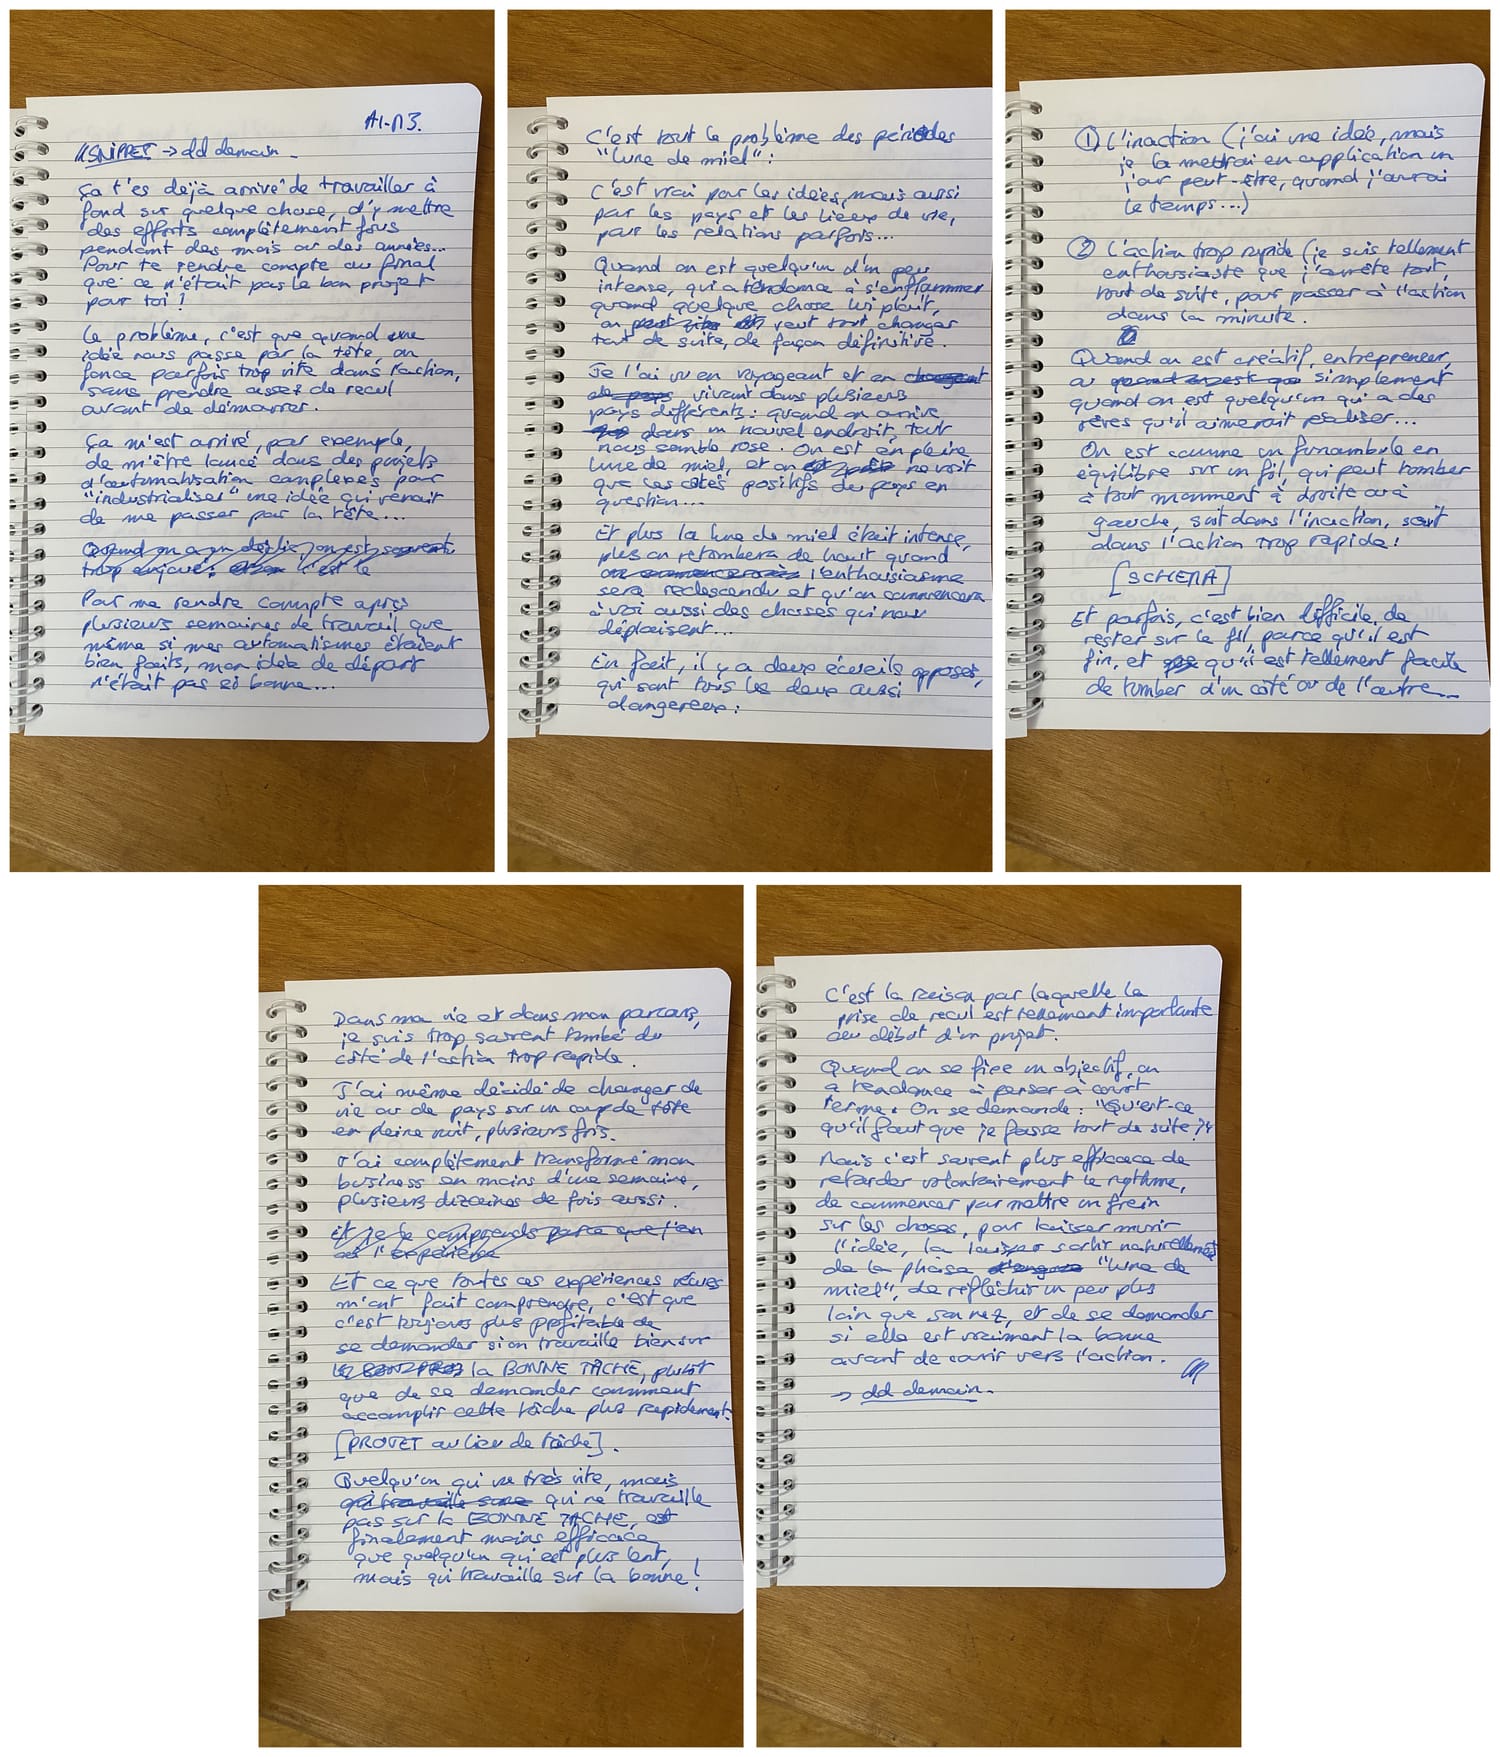 A1-M3.
SNIPPET → dd demain.
Ça t'es déjà arrivé de travailler à
fond sur quelque chose, d'y mettre
des efforts complètement fous
pendant des mois ou des années...
Pour te rendre compte au final
que ce n'était pas le bon projet
pour toi !
Le problème, c'est que quand une
idée nous passe par la tête, on
fonce parfois trop vite dans l'action,
sans prendre assez de recul
avant de démarrer.
Ça m'est arrivé, par exemple,
de m'être lancé dans des projets
d'automatisation complexes pour
"industrialiser" une idée qui venait
de me passer par la tête...
Quand on a un déclic, on est souvent
trop enjoué. c'est le
Pour me rendre compte après
plusieurs semaines de travail que
même si mes automatismes étaient
bien faits, mon idée de départ
n'était pas si bonne...
C'est tout le problème des périodes
"lune de miel" :
C'est vrai pour les idées, mais aussi
pour les pays et les lieux de vie,
pour les relations parfois...
Quand on est quelqu'un d'un peu
intense, qui a tendance à s'enflammer
quand quelque chose lui plaît,
on veut tout changer
tout de suite, de façon définitive.
Je l'ai vu en voyageant et en changeant
de pays vivant dans plusieurs
pays différents : quand on arrive
dans un nouvel endroit, tout
nous semble rose. On est en pleine
lune de miel, et on ne voit
que les côtés positifs du pays en
question...
Et plus la lune de miel était intense,
plus on retombera de haut quand
l'enthousiasme
sera redescendu et qu'on commencera
à voir aussi des choses qui nous
déplaisent...
En fait, il y a deux écueils opposés,
qui sont tous les deux aussi
dangereux :
① L'inaction (j'ai une idée, mais
je la mettrai en application un
jour peut-être, quand j'aurai
le temps...)
② L'action trop rapide (je suis tellement
enthousiaste que j'arrête tout,
tout de suite, pour passer à l'action
dans la minute.
Quand on est créatif, entrepreneur,
ou quand on est que simplement
quand on est quelqu'un qui a des
rêves qu'il aimerait réaliser...
On est comme un funambule en
équilibre sur un fil, qui peut tomber
à tout momment à droite ou à
gauche, soit dans l'inaction, soit
dans l'action trop rapide !
[SCHEMA]
Et parfois, c'est bien difficile de
rester sur le fil, parce qu'il est
fin, et qu'il est tellement facile
de tomber d'un côté ou de l'autre...
Dans ma vie et dans mon parcours,
je suis trop souvent tombé du
côté de l'action trop rapide.
J'ai même décidé de changer de
vie ou de pays sur un coup de tête
en pleine nuit, plusieurs fois.
J'ai complètement transformé mon
business en moins d'une semaine,
plusieurs dizaines de fois aussi.
et je le comprends parce que j'en
ai l'expérience
Et ce que toutes ces expériences vécues
m'ont fait comprendre, c'est que
c'est toujours plus profitable de
se demander si on travaille bien sur
la BONNE TÂCHE, plutôt
que de se demander comment
accomplir cette tâche plus rapidement.
[PROJET au lieu de tâche].
Quelqu'un qui va très vite, mais
qui travaille sur qui ne travaille
pas sur la BONNE TÂCHE, est
finalement moins efficace
que quelqu'un qui est plus lent,
mais qui travaille sur la bonne !
C'est la raison pour laquelle la
prise de recul est tellement importante
au début d'un projet.
Quand on se fixe un objectif, on
a tendance à penser à court
terme. On se demande : "Qu'est-ce
qu'il faut que je fasse tout de suite ?"
Mais c'est souvent plus efficace de
retarder volontairement le rythme,
de commencer par mettre un frein
sur les choses, pour laisser murir
l'idée, la laisser sortir naturellement
de la phase "lune de
miel", de réfléchir un peu plus
loin que son nez, et de se demander
si elle est vraiment la bonne
avant de courir vers l'action.
→ dd demain.